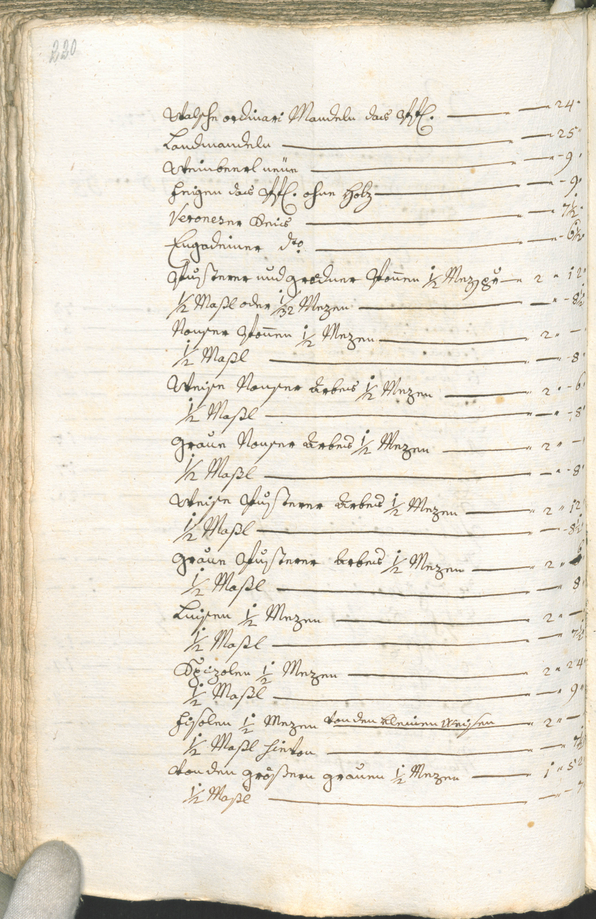 220
Walsche ordinari Mandeln das Pf. — 24
Landmandeln — 25
Weinbeerl neüe — 9
Feigen das Pf. ohne Holz — 9
Veroneser Reis — 7½
Engadeiner dto — 6½
Pusterer und gredner Ponen 1/2 Mezen — 2 " 12
1/2 Maßl oder 1/32 Mezen — 8½
Nonser Ponen 1/2 Mezen — 2 " —
1/2 Maßl — 8
Weise Nonser Arbeis 1/2 Mezen — 2 " 6
1/2 Maßl — 8
Graue Nonser Arbeis 1/2 Mezen — 2 " —
1/2 Maßl — 8
Weise Pusterer Arbeis 1/2 Mezen — 2 " 12
1/2 Maßl — 8½
Graue Pusterer Arbeis 1/2 Mezen — 2 "
1/2 Maßl — 8
Linsen 1/2 Mezen — 2 "
1/2 Maßl — 7½
Spizolen 1/2 Mezen — 2 " 24
1/2 Maßl — 9
Fisolen 1/2 Mezen von den kleinen Weisen — 2 " —
1/2 Maßl hievon — 7½
Von den größern grauen 1/2 Mezen — 1 " 52
1/2 Maßl — 7